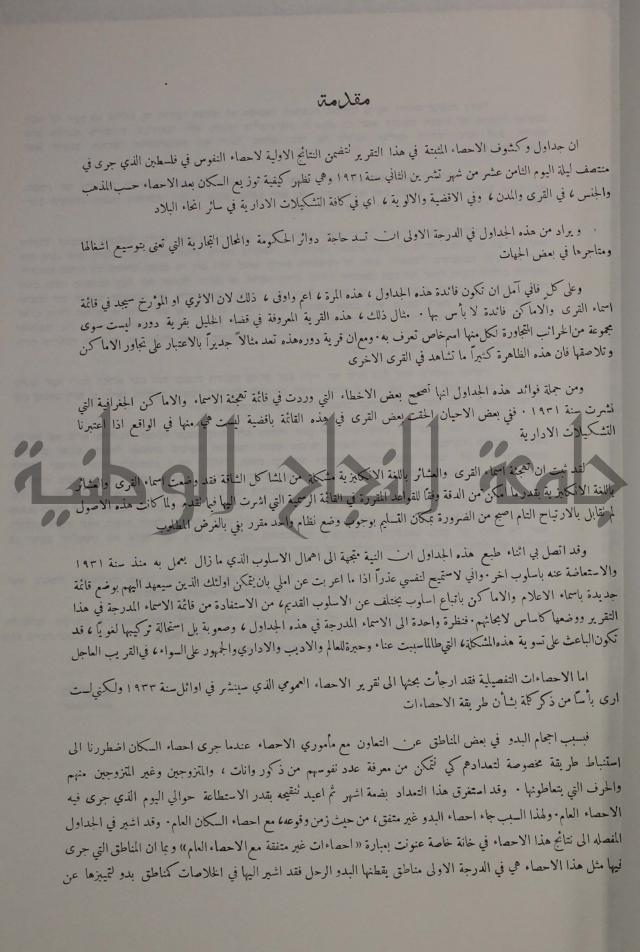 مقدمة
ان جداول وكشوف الاحصاء المثبتة في هذا التقرير تتضمن النتائج الاولية لاحصاء النفوس في فلسطين الذي جرى في
منتصف ليلة اليوم الثامن عشر من شهر تشرين الثاني سنة ١٩٣١ وهي تظهر كيفية توزيع السكان بعد الاحصاء حسب المذهب
والجنس ، في القرى والمدن ، وفي الاقضية والالوية ، اي في كافة التشكيلات الادارية في سائر انحاء البلاد
ويراد من هذه الجداول في الدرجة الاولى ان تسد حاجة دوائر الحكومة والمحال التجارية التي تعنى بتوسيع اشغالها
ومتاجرها في بعض الجهات
وعلى كل فاني آمل ان تكون فائدة هذه الجداول ، هذه المرة ، اعم واوفى ، ذلك لان الاثري او المؤرخ سيجد في قائمة
اسماء القرى والاماكن فائدة لا بأس بها . مثال ذلك ، هذه القرية المعروفة في قضاء الخليل بقرية دوره ليست سوى
مجموعة من الخرائب المتجاورة لكل منها اسم خاص تعرف به . ومع ان قرية دوره هذه تعد مثالاً جديراً بالاعتبار على تجاور الاماكن
وتلاصقها فان هذه الظاهرة كثيراً ما تشاهد في القرى الاخرى
ومن جملة فوائد هذه الجداول انها تصحح بعض الاخطاء التي وردت في قائمة تهجئة الاسماء والاماكن الجغرافية التي
نشرت سنة ١٩٣١ . ففي بعض الاحيان الحقت بعض القرى في هذه القائمة باقضية ليست هي منها في الواقع اذا اعتبرنا
التشكيلات الادارية
جامعة النجاح الوطنية
لقد ثبت ان تهجئة اسماء القرى والعشائر باللغة الانكليزية مشكلة من المشاكل الشاقة فقد وضعت اسماء القرى والعشائر
باللغة الانكليزية بقدر ما امكن من الدقة وفقاً للقواعد المقررة في القائمة الرسمية التي اشرت اليها فيما تقدم ولما كانت هذه الاصول
لم تقابل بالارتياح التام اصبح من الضرورة بمكان التسليم بوجوب وضع نظام واحد مقرر يفي بالغرض المطلوب
وقد اتصل بي اثناء طبع هذه الجداول ان النية متجهة الى اهمال الاسلوب الذي ما زال يعمل به منذ سنة ١٩٣١
والاستعاضة عنه باسلوب اخر . واني لاستميح لنفسي عذراً اذا ما اعربت عن املي بان يتمكن اولئك الذين سيعهد اليهم بوضع قائمة
جديدة باسماء الاعلام والاماكن باتباع اسلوب يختلف عن الاسلوب القديم ، من الاستفادة من قائمة الاسماء المدرجة في هذا
التقرير ووضعها كاساس لابحاثهم . فنظرة واحدة الى الاسماء المدرجة في هذه الجداول ، وصعوبة بل استحالة تركيبها لغوياً ، قد
تكون الباعث على تسوية هذه المشكلة ، التي طالما سببت عناء وحيرة للعالم والاديب والاداري والجمهور على السواء ، في القريب العاجل
اما الاحصاءات التفصيلية فقد ارجأت بحثها الى تقرير الاحصاء العمومي الذي سينشر في اوائل سنة ١٩٣٣ ولكني لست
ارى بأساً من ذكر كلمة بشأن طريقة الاحصاءات
فبسبب احجام البدو في بعض المناطق عن التعاون مع مأموري الاحصاء عندما جرى احصاء السكان اضطررنا الى
استنباط طريقة مخصوصة لتعدادهم كي نتمكن من معرفة عدد نفوسهم من ذكور واناث ، والمتزوجين وغير المتزوجين منهم
والحرف التي يتعاطونها . وقد استغرق هذا التعداد بضعة اشهر ثم اعيد تنقيحه بقدر الاستطاعة حوالي اليوم الذي جرى فيه
الاحصاء العام . ولهذا السبب جاء احصاء البدو غير متفق ، من حيث زمن وقوعه ، مع احصاء السكان العام . وقد اشير في الجداول
المفصله الى نتائج هذا الاحصاء في خانة خاصة عنونت بعبارة « احصاءات غير متفقة مع الاحصاء العام » وبما ان المناطق التي جرى
فيها مثل هذا الاحصاء هي في الدرجة الاولى مناطق يقطنها البدو الرحل فقد اشير اليها في الخلاصات كمناطق بدو لتمييزها عن